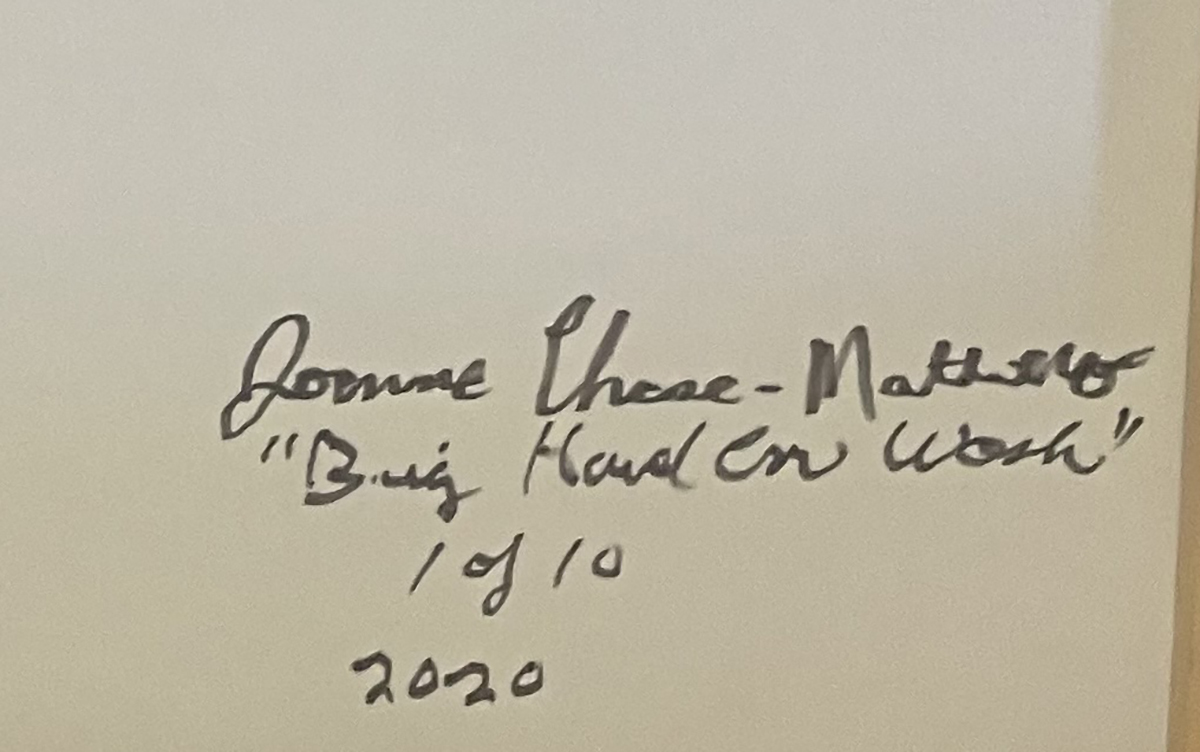 Joanne Chase-Mattillo
"Big Hand Em Wash"
1 of 10
2020